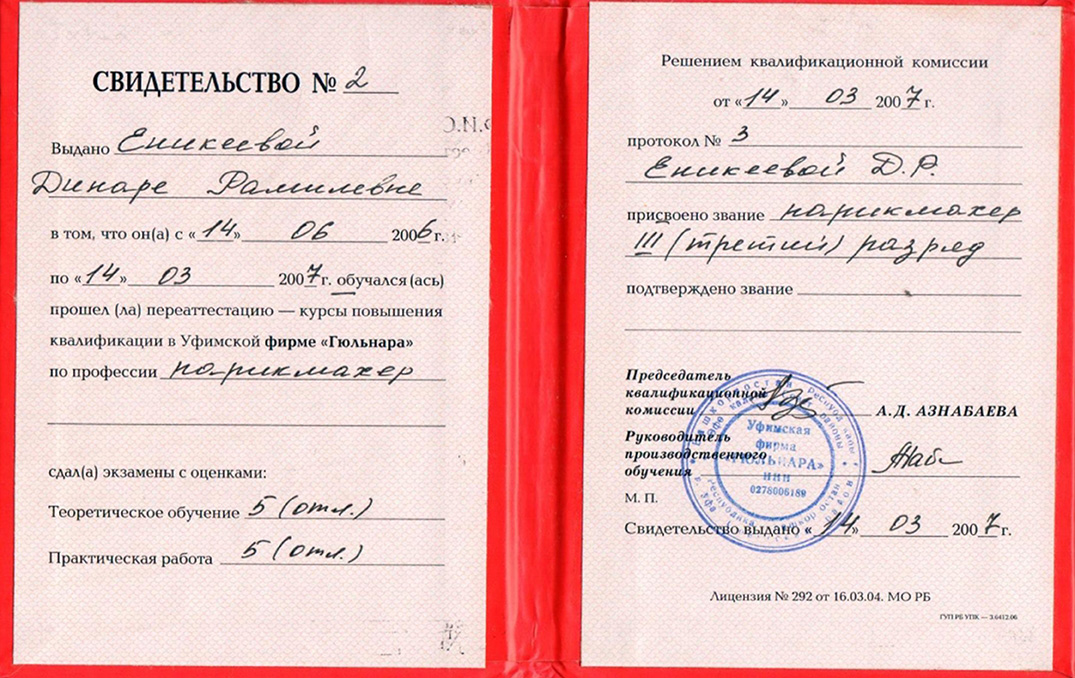 СВИДЕТЕЛЬСТВО № 2
Выдано Еникеевой
Динаре Рамилевне
в том, что он(а) с «14» 06 2006 г.
по «14» 03 2007 г. обучался (ась)
прошел (ла) переаттестацию — курсы повышения
квалификации в Уфимской фирме «Гюльнара»
по профессии парикмахер
сдал(а) экзамены с оценками:
Теоретическое обучение 5 (отл.)
Практическая работа 5 (отл.)
Решением квалификационной комиссии
от «14» 03 2007 г.
протокол № 3
Еникеевой Д.Р.
присвоено звание парикмахер
III (третий) разряд
подтверждено звание
Председатель
квалификационной
комиссии А.Д. АЗНАБАЕВА
Руководитель
производственного
обучения
М. П.
Уфимская
фирма
«ГЮЛЬНАРА»
ИНН
0278006189
Свидетельство выдано «14» 03 2007 г.
Лицензия № 292 от 16.03.04. МО РБ
ГУП РБ УПК — 3.6412.06